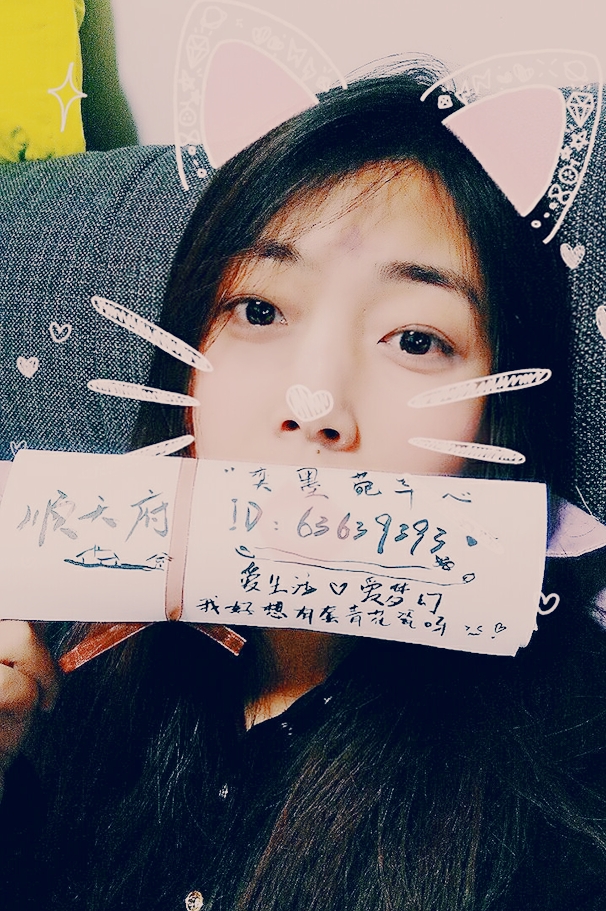 順天府
"奕墨苑弃心
ID:63639393.
爱生活♡爱梦幻
我好想有套青花瓷呀